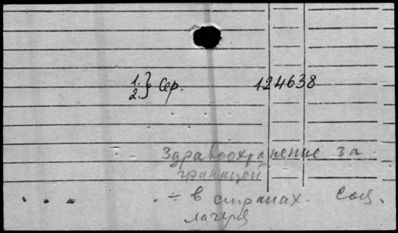 1.} Сер. 124638
2.
Здравоохранение за
границей
... ÷ в странах. соц.
лагеря